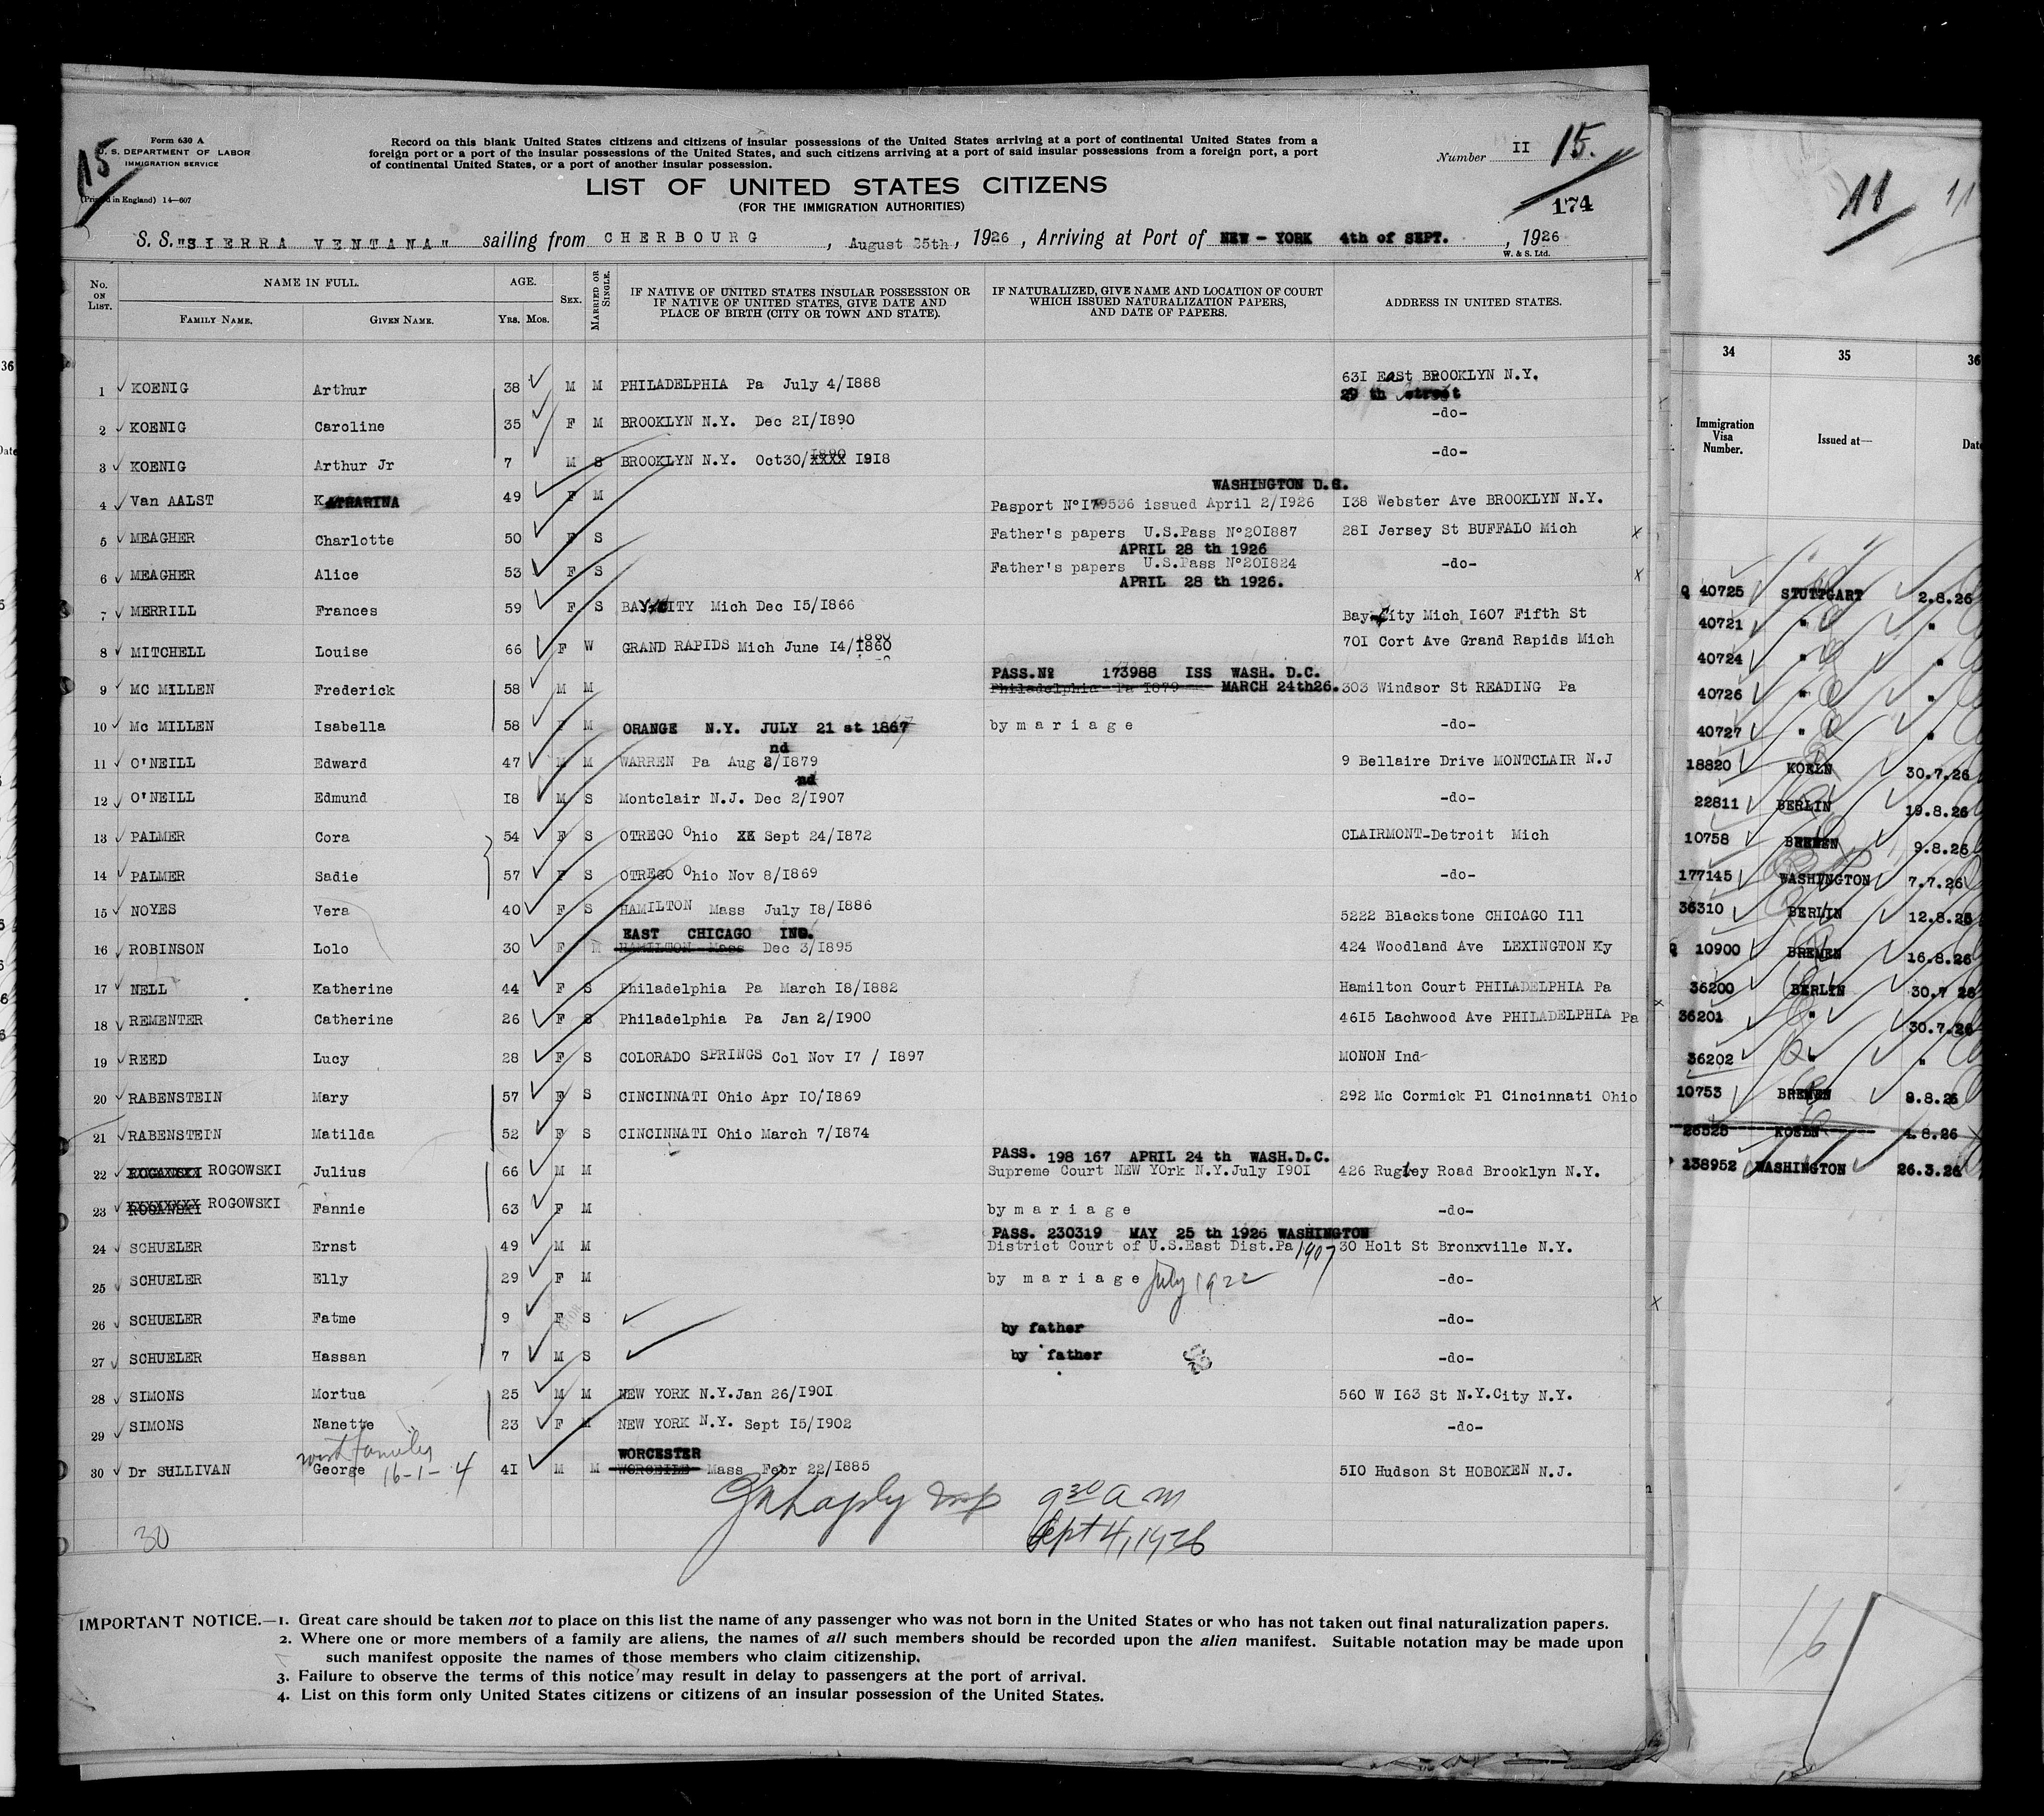 15
Form 630 A
U. S. DEPARTMENT OF LABOR
IMMIGRATION SERVICE
(Printed in England) 14—607
Record on this blank United States citizens and citizens of insular possessions of the United States arriving at a port of continental United States from a
foreign port or a port of the insular possessions of the United States, and such citizens arriving at a port of said insular possessions from a foreign port, a port
of continental United States, or a port of another insular possession.
Number II 15.
LIST OF UNITED STATES CITIZENS
(FOR THE IMMIGRATION AUTHORITIES)
174
S. S. "SIERRA VENTANA" sailing from CHERBOURG, August 25th, 1926, Arriving at Port of NEW-YORK 4th of SEPT., 1926
W. & S. Ltd.
No. ON LIST. NAME IN FULL. AGE. SEX. MARRIED OR SINGLE. IF NATIVE OF UNITED STATES INSULAR POSSESSION OR IF NATIVE OF UNITED STATES, GIVE DATE AND PLACE OF BIRTH (CITY OR TOWN AND STATE). IF NATURALIZED, GIVE NAME AND LOCATION OF COURT WHICH ISSUED NATURALIZATION PAPERS, AND DATE OF PAPERS. ADDRESS IN UNITED STATES.
FAMILY NAME. GIVEN NAME. YRS. MOS.
1 KOENIG Arthur 38 M M PHILADELPHIA Pa July 4/I888 63I East BROOKLYN N.Y.
29 th street
2 KOENIG Caroline 35 F M BROOKLYN N.Y. Dec 2I/I890 -do-
3 KOENIG Arthur Jr 7 M S BROOKLYN N.Y. Oct30/XXXX I9I8 -do-
WASHINGTON D.C.
4 Van AALST KATHARINA 49 F M Pasport N°I79536 issued April 2/I926 I38 Webster Ave BROOKLYN N.Y.
5 MEAGHER Charlotte 50 F S Father's papers U.S.Pass N°20I887 28I Jersey St BUFFALO Mich x
APRIL 28 th 1926
6 MEAGHER Alice 53 F S Father's papers U.S.Pass N°20I824 -do- x
APRIL 28 th 1926.
7 MERRILL Frances 59 F S BAY CITY Mich Dec I5/I866 Bay City Mich I607 Fifth St
8 MITCHELL Louise 66 F W GRAND RAPIDS Mich June I4/I860 70I Cort Ave Grand Rapids Mich
PASS.No 173988 ISS WASH. D.C.
9 MC MILLEN Frederick 58 M M Philadelphia Pa I879 MARCH 24th26. 303 Windsor St READING Pa
10 Mc MILLEN Isabella 58 F M ORANGE N.Y. JULY 21 st 1867 by mariage -do-
nd
11 O'NEILL Edward 47 M M WARREN Pa Aug 2/I879 9 Bellaire Drive MONTCLAIR N.J
nd
12 O'NEILL Edmund I8 M S Montclair N.J. Dec 2/I907 -do-
13 PALMER Cora 54 F S OTREGO Ohio XX Sept 24/I872 CLAIRMONT-Detroit Mich
14 PALMER Sadie 57 F S OTREGO Ohio Nov 8/I869 -do-
15 NOYES Vera 40 F S HAMILTON Mass July I8/I886 5222 Blackstone CHICAGO Ill
EAST CHICAGO IND.
16 ROBINSON Lolo 30 F M HAMILTON Mass Dec 3/I895 424 Woodland Ave LEXINGTON Ky
17 NELL Katherine 44 F S Philadelphia Pa March I8/I882 Hamilton Court PHILADELPHIA Pa
18 REMENTER Catherine 26 F S Philadelphia Pa Jan 2/I900 46I5 Lachwood Ave PHILADELPHIA Pa
19 REED Lucy 28 F S COLORADO SPRINGS Col Nov I7 / I897 MONON Ind
20 RABENSTEIN Mary 57 F S CINCINNATI Ohio Apr IO/I869 292 Mc Cormick Pl Cincinnati Ohio
21 RABENSTEIN Matilda 52 F S CINCINNATI Ohio March 7/I874
PASS. 198 167 APRIL 24 th WASH.D.C.
22 ROGANSKI ROGOWSKI Julius 66 M M Supreme Court NEW YOrk N.Y.July I90I 426 Rugby Road Brooklyn N.Y.
23 ROGANSKI ROGOWSKI Fannie 63 F M by mariage -do-
PASS. 230319 MAY 25 th 1926 WASHINGTON
24 SCHUELER Ernst 49 M M District Court of U.S.East Dist.Pa 1907 30 Holt St Bronxville N.Y.
25 SCHUELER Elly 29 F M by mariage July 1922 -do-
26 SCHUELER Fatme 9 F S by father -do-
27 SCHUELER Hassan 7 M S by father -do-
28 SIMONS Mortua 25 M M NEW YORK N.Y.Jan 26/I90I 560 W I63 St N.Y.City N.Y.
29 SIMONS Nanette 23 F M NEW YORK N.Y. Sept I5/I902 -do-
WORCESTER
30 Dr SULLIVAN George 16-1-4 4I M M Mass Febr 22/I885 5IO Hudson St HOBOKEN N.J.
9 30 am
Sept 4, 1926
30
IMPORTANT NOTICE.—1. Great care should be taken not to place on this list the name of any passenger who was not born in the United States or who has not taken out final naturalization papers.
2. Where one or more members of a family are aliens, the names of all such members should be recorded upon the alien manifest. Suitable notation may be made upon
such manifest opposite the names of those members who claim citizenship.
3. Failure to observe the terms of this notice may result in delay to passengers at the port of arrival.
4. List on this form only United States citizens or citizens of an insular possession of the United States.
11 11
34 35 36
Immigration Visa Number. Issued at— Date
Q 40725 STUTTGART 2.8.26
40721 " "
40724 " "
40726 " "
40727 " "
18820 KOELN 30.7.26
22811 BERLIN 19.8.26
10758 BREMEN 9.8.26
177145 WASHINGTON 7.7.26
36310 BERLIN 12.8.26
Q 10900 BREMEN 16.8.26
36200 BERLIN 30.7 26
36201 " 30.7.26
36202 " "
10753 BREMEN 9.8.26
26525 KOELN 4.8.26
138952 WASHINGTON 26.3.26
16